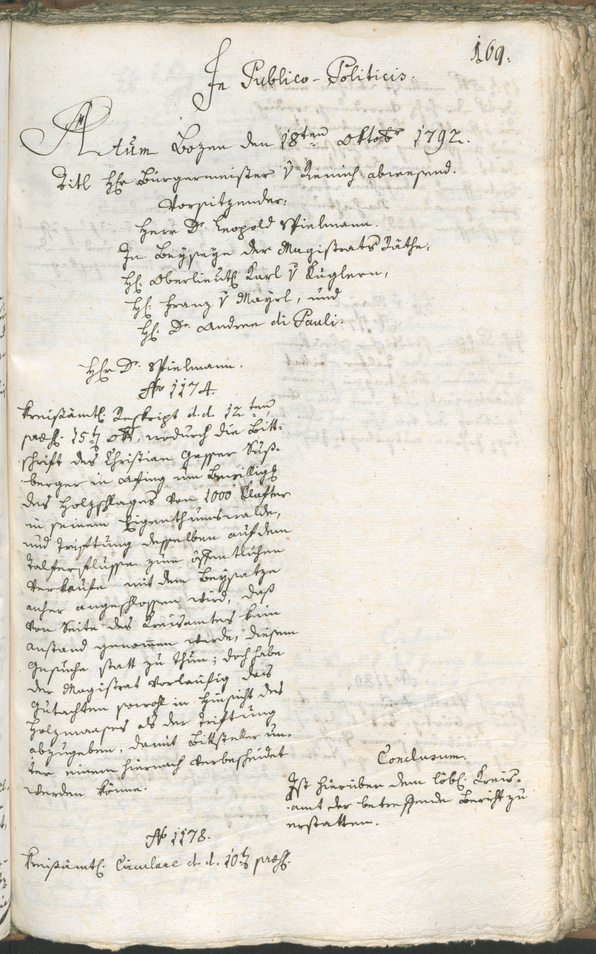 169.
In Publico-Politicis.
Actum Bozen den 18ten Oktobr 1792.
Titl Hr Bürgermeister v Remich abwesend.
Vorsitzender:
Herr Dr. Leopold Spielmann.
In Beyseyn der Magistrats Räthe,
H: Oberlieut: Karl v Kuglern,
H: Franz v Mayrl, und
H: Dr. Andree di Pauli.
Hr Dr. Spielmann.
No 1174.
Kreisämtl: Reskript d. d. 12ten,
præs: 15t Okt:, wodurch die Bitt-
schrift des Christian Gasser Süß-
berger in Afing um Bewillig
des Holzschlages von 1000 Klafter
in seinem Eigenthumswalde,
und Trifttung desselben auf dem
Talferflusse zum öffentlichen
Verkaufe mit dem Beysatze
anher angeschlossen wird, daß
von Seite des Kreisamtes kein
Anstand genommen werde, diesem
Gesuche statt zu thun; doch habe
der Magistrat vorläufig das
Gutachten sowohl in Hinsicht des
Holzmaases als der Triftung
abzugeben, damit Bittsteller un-
ter einem hiernach verbescheidet
werden könne.
Conclusum.
Ist hierüber dem löbl: Kreis-
amt der betreffende Bericht zu
erstatten.
No 1178.
Kreisämtl: Circulare d. d. 10t præs: